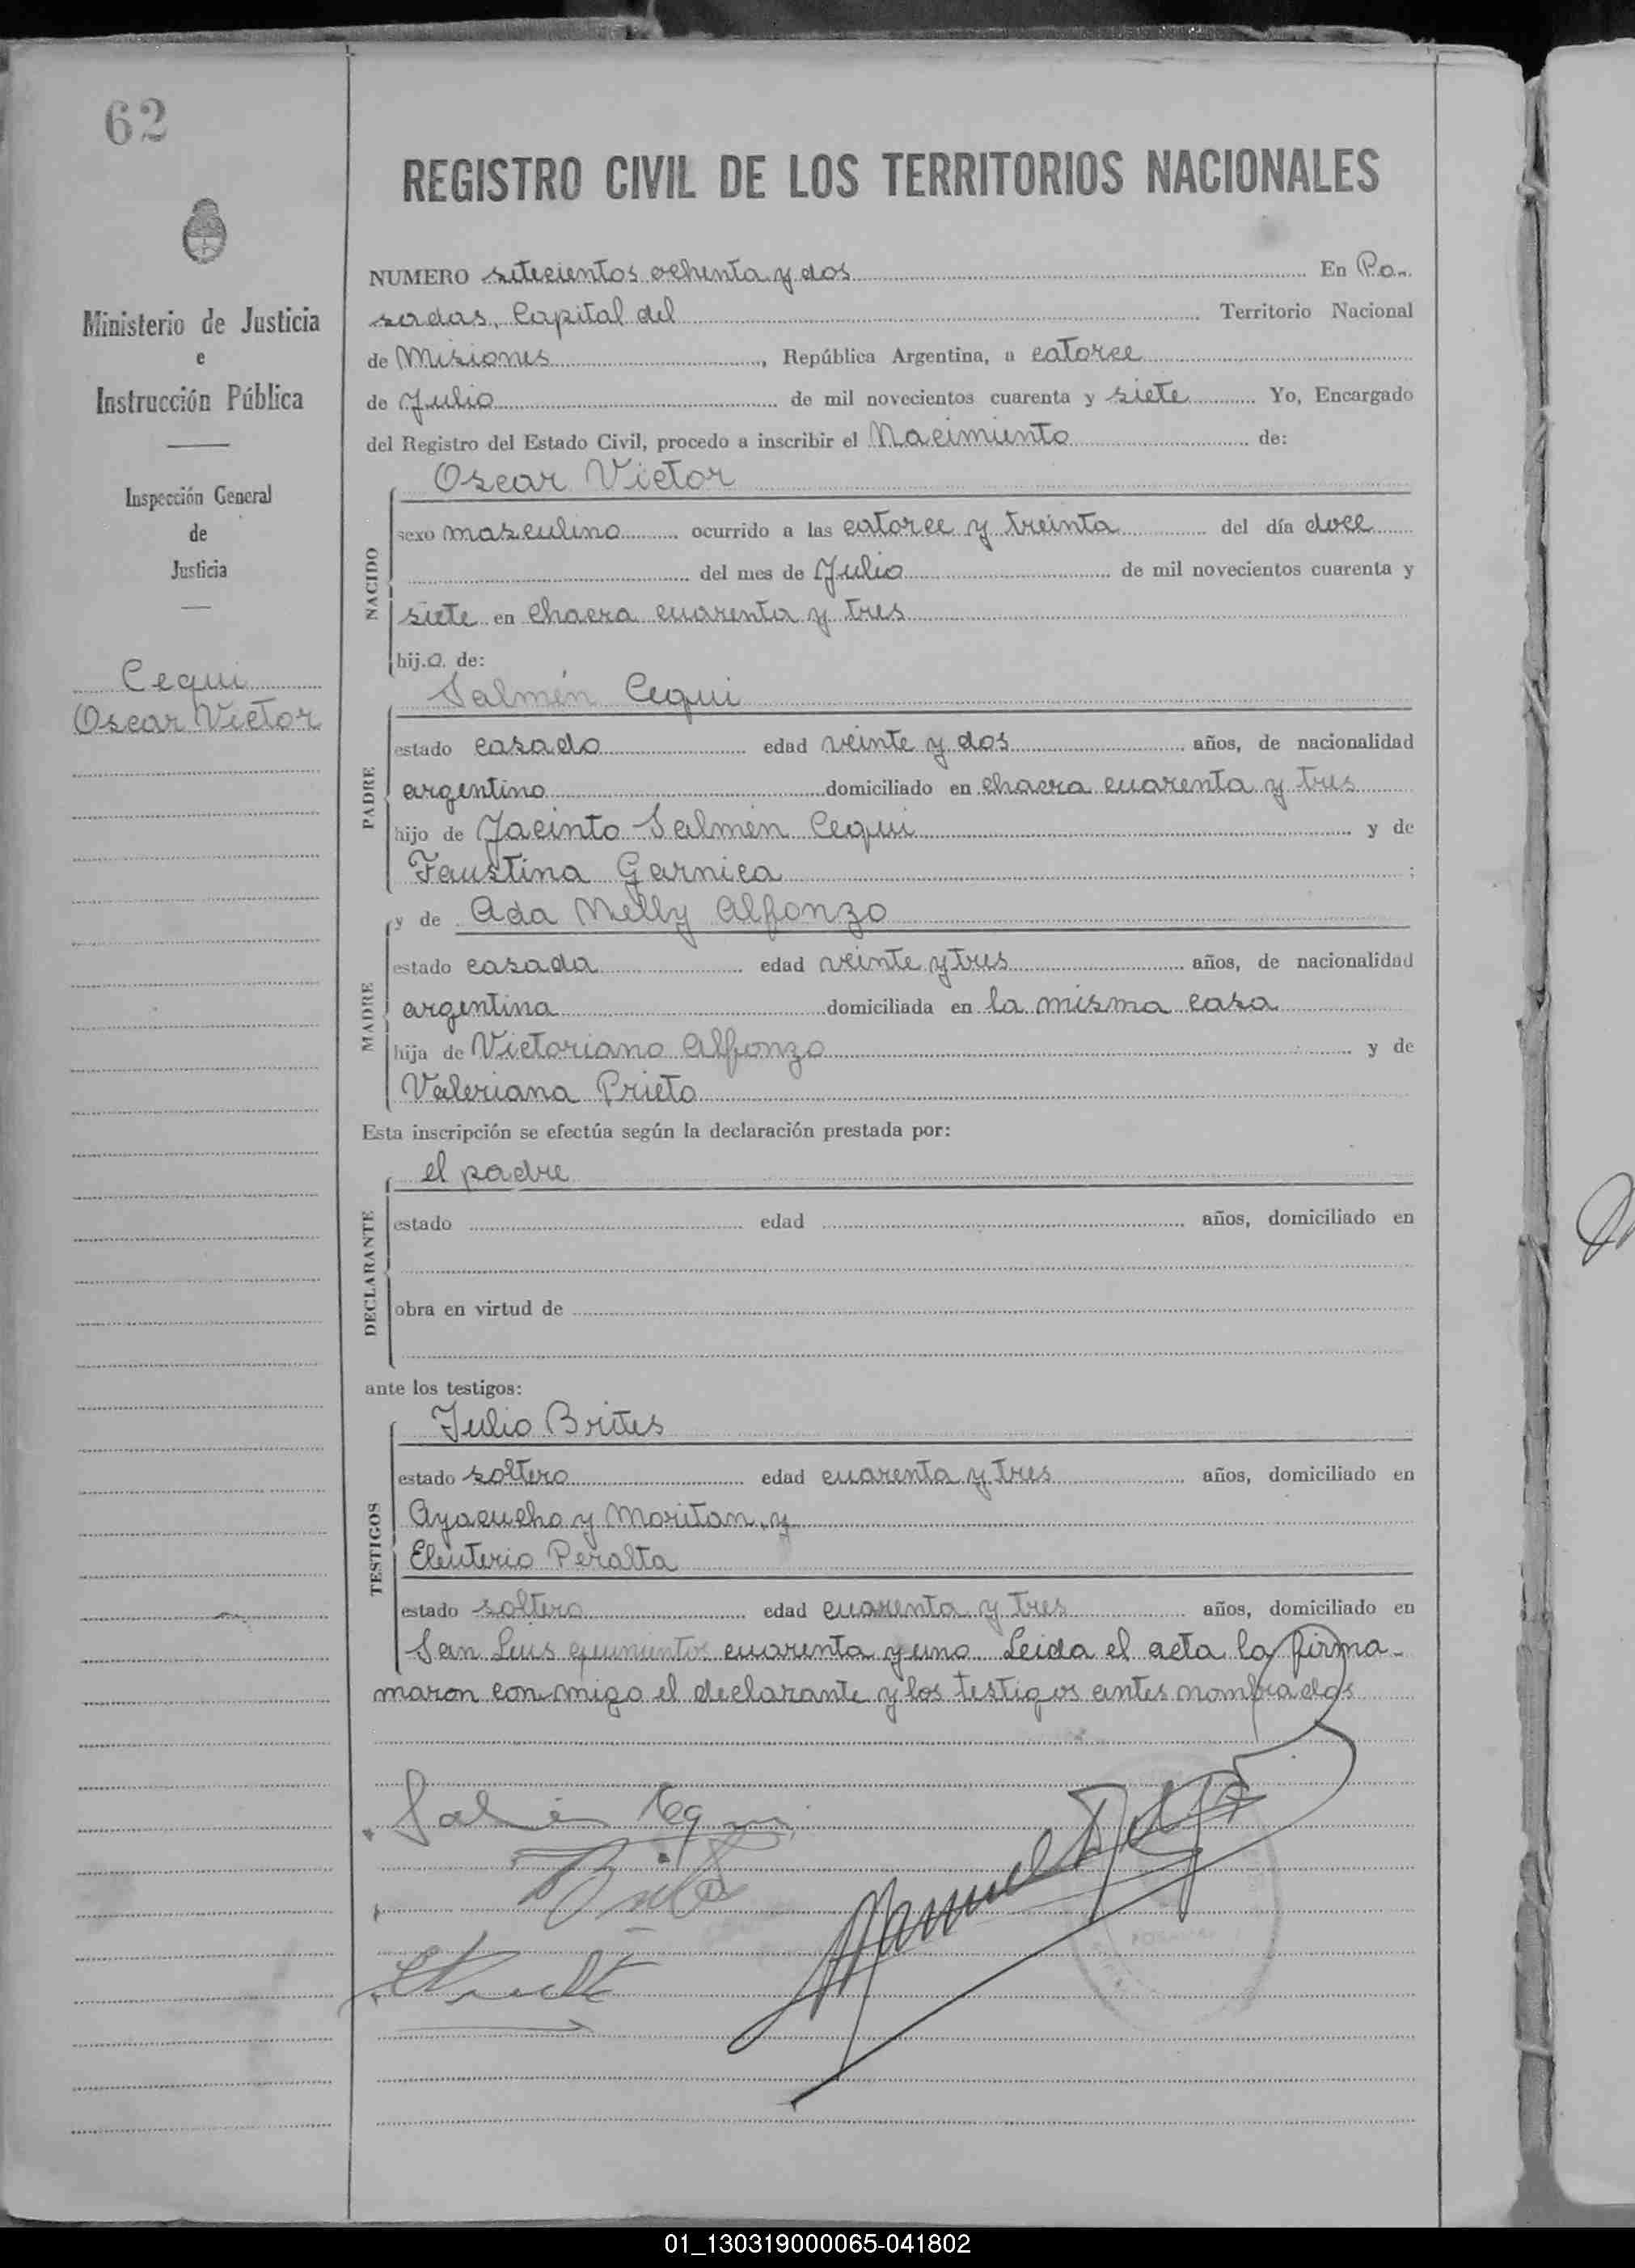 62
REGISTRO CIVIL DE LOS TERRITORIOS NACIONALES
Ministerio de Justicia
e
Instrucción Pública
Inspección General
de
Justicia
Cequi
Oscar Victor
NUMERO setecientos ochenta y dos En Po-
sadas, Capital del Territorio Nacional
de Misiones, República Argentina, a catorce
de Julio de mil novecientos cuarenta y siete Yo, Encargado
del Registro del Estado Civil, procedo a inscribir el Nacimiento de:
Oscar Victor
NACIDO
sexo masculino ocurrido a las catorce y treinta del día doce
del mes de Julio de mil novecientos cuarenta y
siete en chacra cuarenta y tres
hijo de:
Salmén Cequi
PADRE
estado casado edad veinte y dos años, de nacionalidad
argentino domiciliado en chacra cuarenta y tres
hijo de Jacinto Salmen Cequi y de
Faustina Garnica;
y de Ada Nelly Alfonzo
MADRE
estado casada edad veinte y tres años, de nacionalidad
argentina domiciliada en la misma casa
hija de Victoriano Alfonzo y de
Valeriana Prieto
Esta inscripción se efectúa según la declaración prestada por:
el padre
DECLARANTE
estado edad años, domiciliado en
obra en virtud de
ante los testigos:
Julio Brites
TESTIGOS
estado soltero edad cuarenta y tres años, domiciliado en
Ayacucho y Moritan, y
Eleuterio Peralta
estado soltero edad cuarenta y tres años, domiciliado en
San Luis quinientos cuarenta y uno. Leida el acta la firma-
maron con migo el declarante y los testigos antes nombrados
Cequi
Manuel
01_130319000065-041802